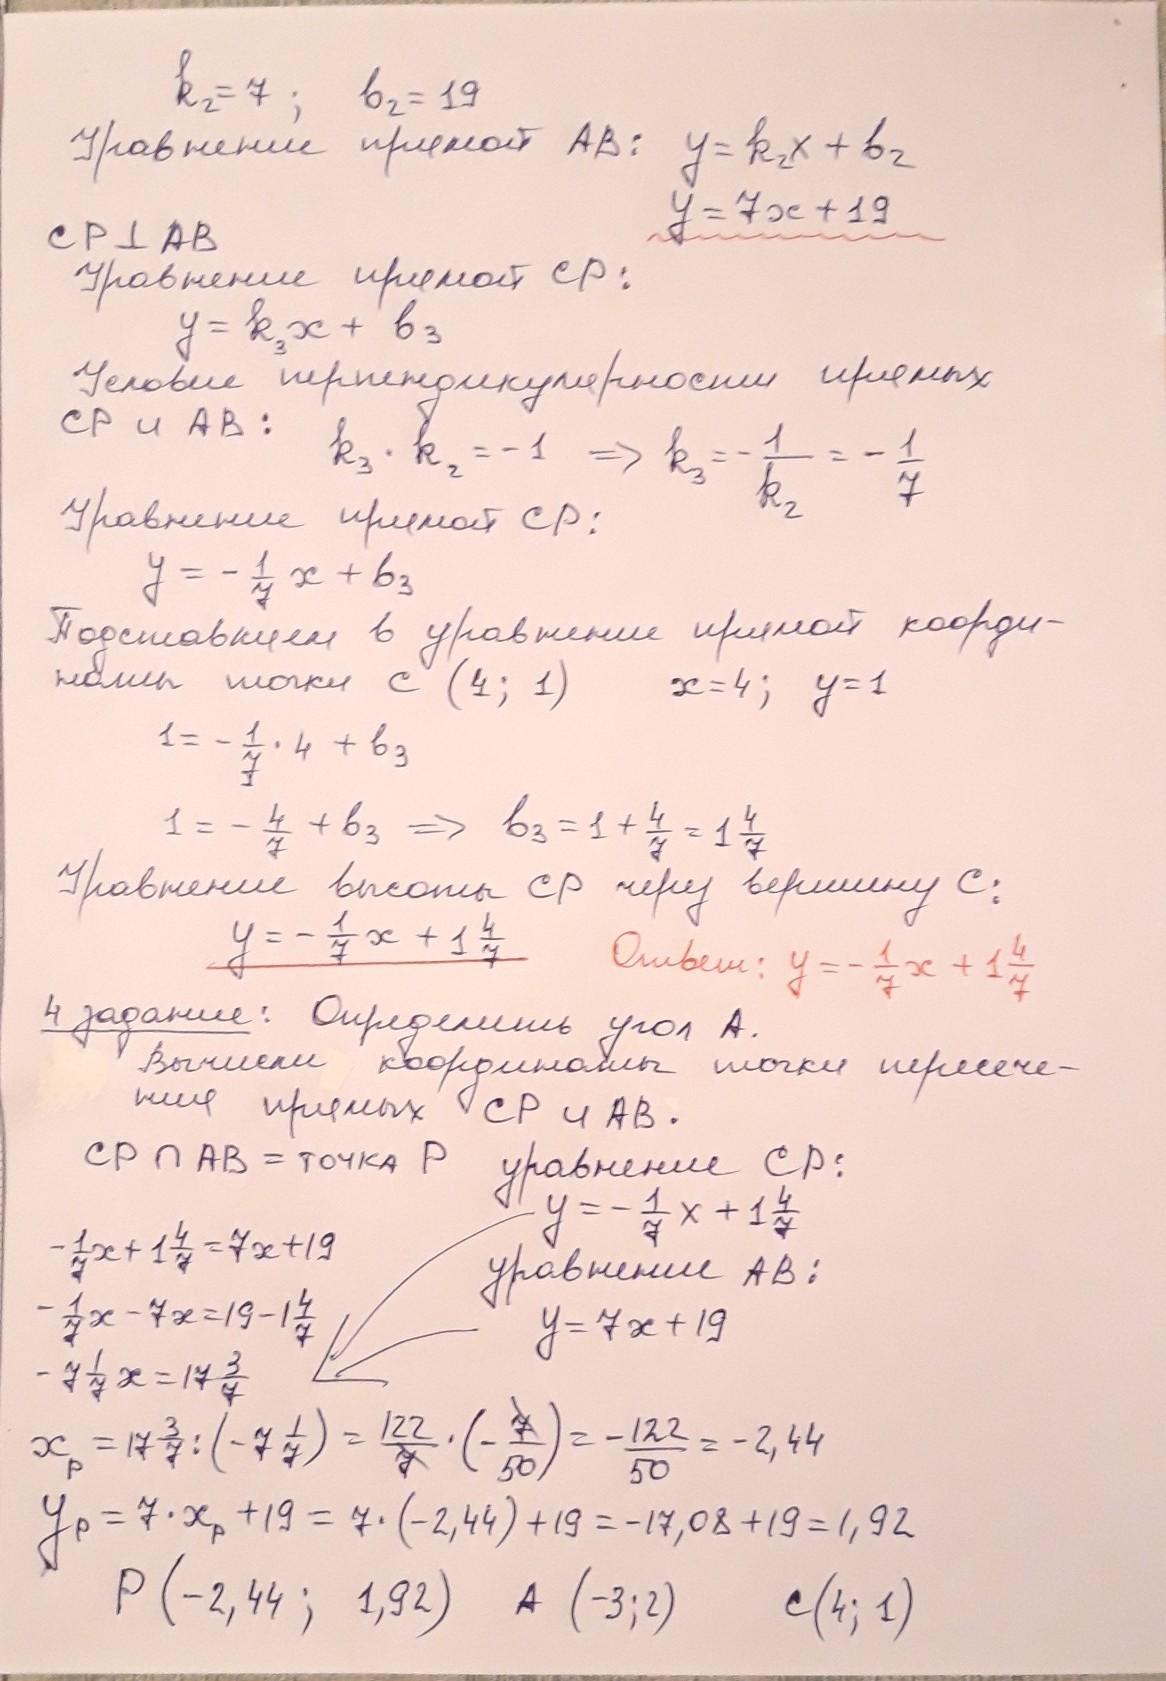 k₂=7; b₂=19
Уравнение прямой AB: y=k₂x+b₂
y=7x+19
CP⊥AB
Уравнение прямой CP:
y=k₃x+b₃
Условие перпендикулярности прямых
CP и AB: k₃·k₂=-1 => k₃=-1/k₂=-1/7
Уравнение прямой CP:
y=-1/7x+b₃
Подставляем в уравнение прямой коорди-
наты точки C (4; 1) x=4; y=1
1=-1/7·4+b₃
1=-4/7+b₃ => b₃=1+4/7=1 4/7
Уравнение высоты CP через вершину C:
y=-1/7x+1 4/7 Ответ: y=-1/7x+1 4/7
4 задание: Определить угол A.
Вычислим координаты точки пересече-
ния прямых CP и AB.
CP∩AB=точка P уравнение CP:
y=-1/7x+1 4/7
-1/7x+1 4/7=7x+19
уравнение AB:
-1/7x-7x=19-1 4/7
y=7x+19
-7 1/7x=17 3/7
xₚ=17 3/7:(-7 1/7)=122/7·(-7/50)=-122/50=-2,44
yₚ=7·xₚ+19=7·(-2,44)+19=-17,08+19=1,92
P(-2,44; 1,92) A(-3;2) C(4; 1)